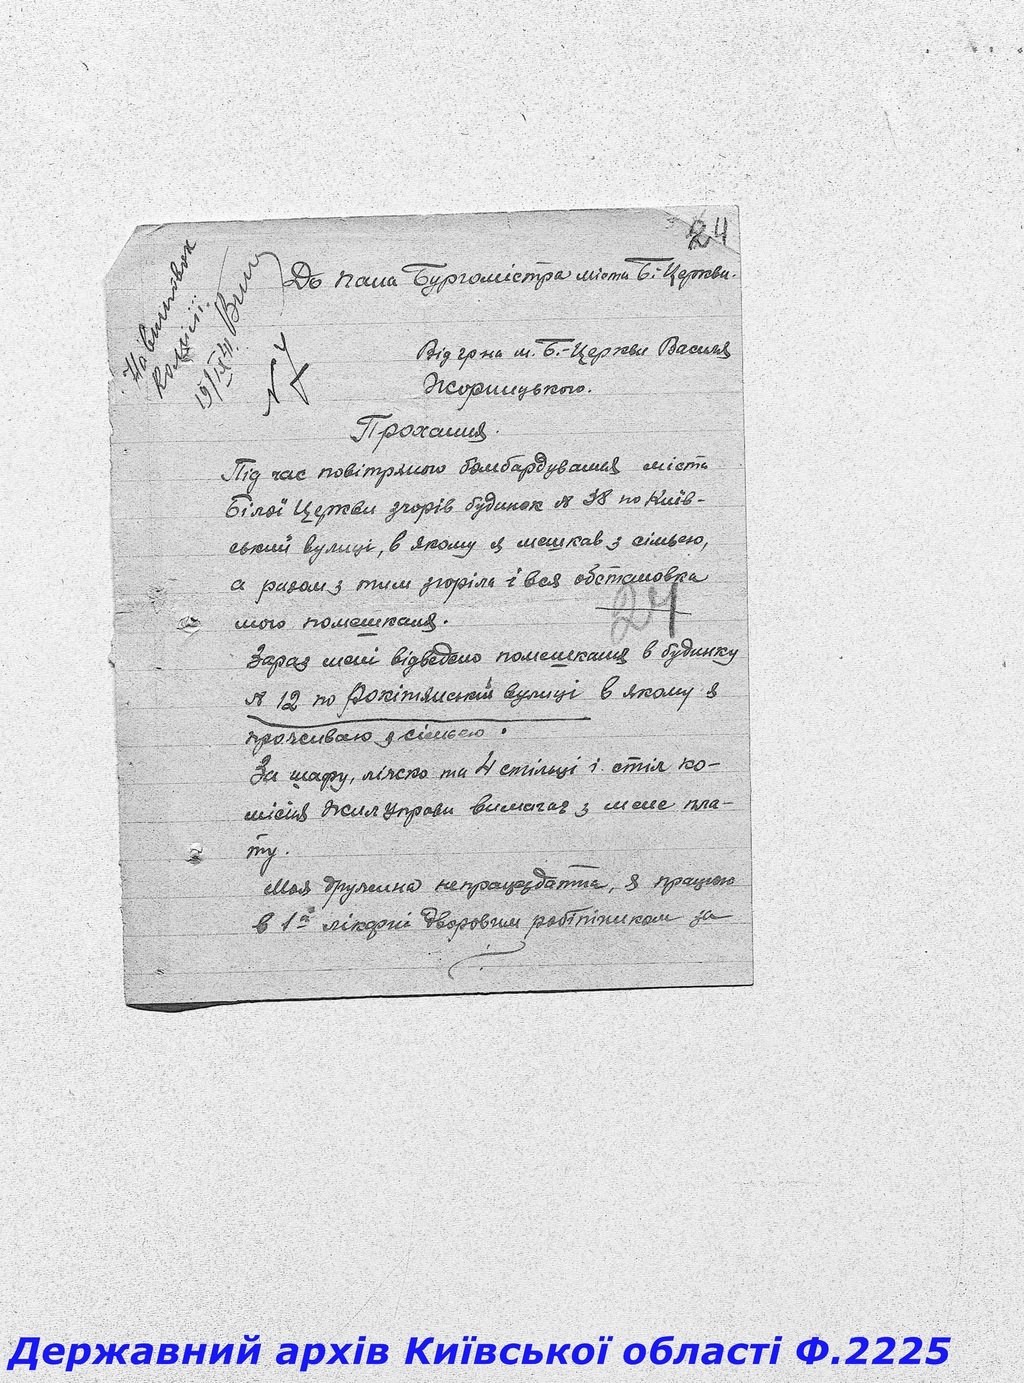 24
На висновок
комісії.
19/IX 41.
До пана Бургомістра міста Б.-Церкви.
Від гр-на м. Б.-Церкви Василя
Жорницького.
Прохання.
Під час повітряного бомбардування міста
Білої Церкви згорів будинок № 38 по Київ-
ський вулиці, в якому я мешкав з сімьею,
а разом з тим згоріла і вся обстановка
мого помешканя.
24
Зараз мені відведено помешкання в будинку
№ 12 по Рокітянській вулиці в якому я
проживаю з сімьею.
За шафу, ліжко та 4 стільці і стіл ко-
місія Жилуправи вимагає з мене пла-
ту.
Моя дружина непрацездатна, я працюю
в 1й лікарні дворовим робітником за
Державний архів Київської області Ф.2225